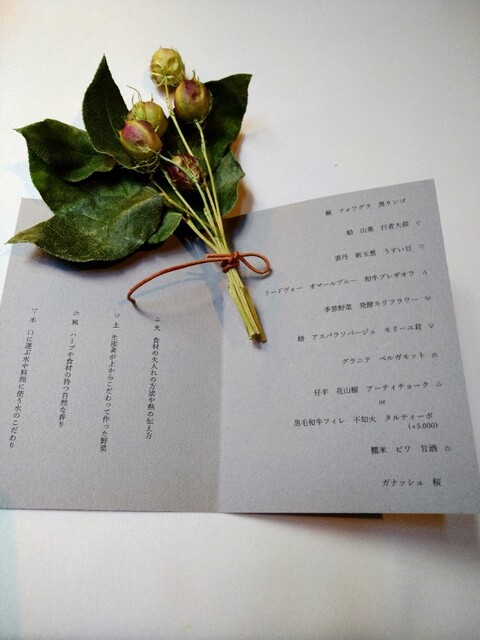 フォワグラ 黒リンゴ
蛤 山菜 行者大蒜 ▽
雲丹 新玉葱 うすい豆 ▽
リードヴォー オマールブルー 和牛ブレザオラ △
季節野菜 発酵カリフラワー
アスパラソバージュ モリーユ茸
グラニテ ベルガモット
仔羊 花山椒 アーティチョーク △
or
黒毛和牛フィレ 不知火 タルティーボ
(+5,000)
糯米 ビワ 甘酒
ガナッシュ 桜
△ 火 食材の火入れの方法や熱の伝え方
土 生産者が土からこだわって作った野菜
風 ハーブや食材の持つ自然な香り
▽ 水 口に運ぶ水や料理に使う水のこだわり